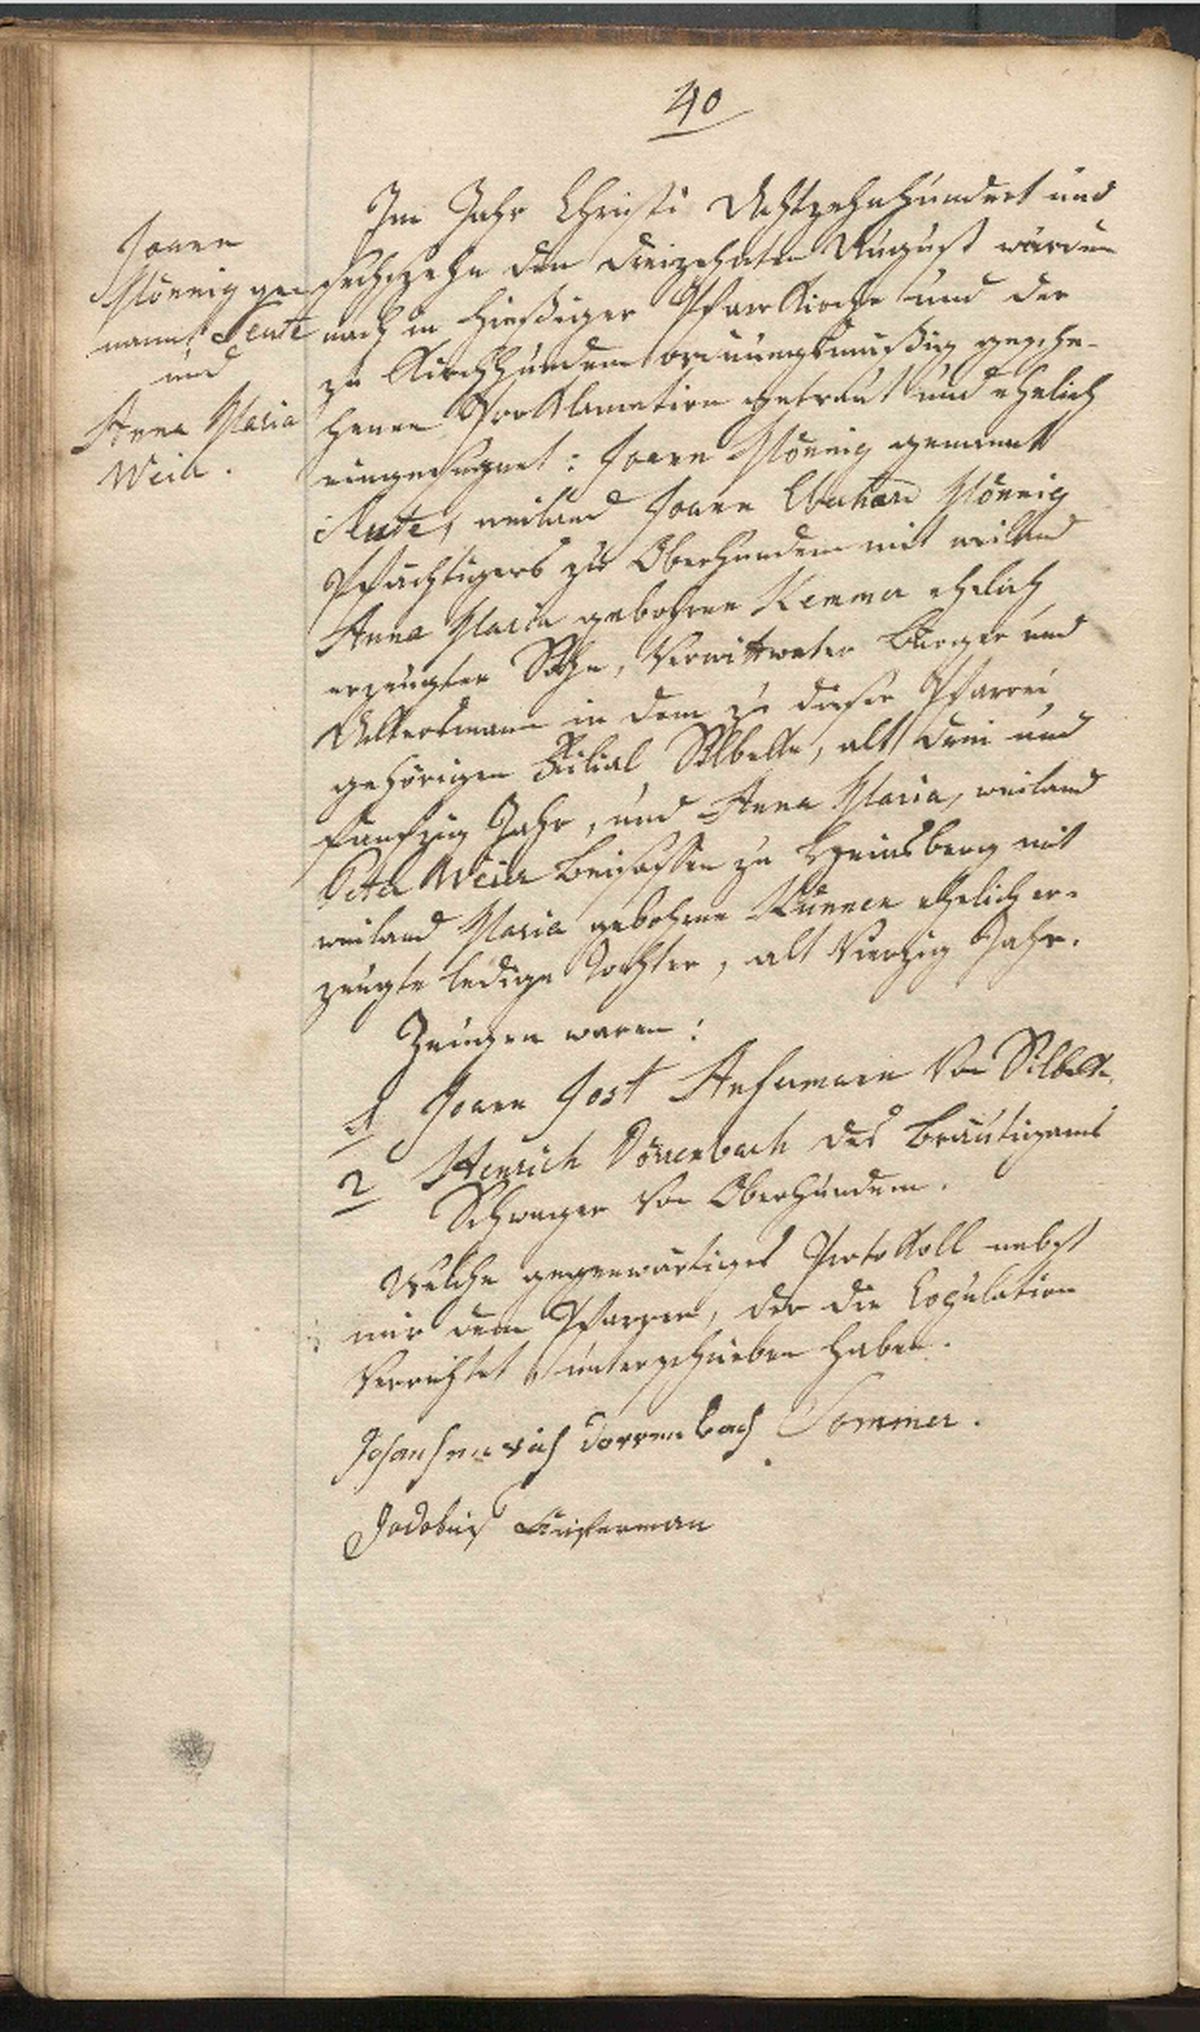 40
Joann
Mönnig ge-
nannt Seute
und
Anna Maria
Weier.
Im Jahr Christi Achtzehnhundert und
sechszehn den dreizehnten August wurden
nach in hiesiger Pfarrkirche und der
zu Kirchhundem ordnungsmäßig gesche-
henen Proklamation getraut und ehelich
eingesegnet: Joann Mönnig genannt
Seute, weiland Joann Eberhard Mönnig
zu Oberhundem mit weiland
Anna Maria gebohrne Kemmer ehelich
erzeugter Sohn, Verwittweter Bürger und
Ackersmann in dem zu dieser Pfarrei
gehörigen Filial Silbecke, alt drei und
fünfzig Jahr, und Anna Maria, weiland
Peter Weier Beisassen zu Heinsberg mit
weiland Maria gebohrne ehelich er-
zeugte ledige Tochter, alt Vierzig Jahr.
Zeugen waren:
1 Joann Jost Von Silbecke
2 Henrich Dörrenbach des Bräutigams
Schwager Von Oberhundem.
Welche gegenwärtiges Protokoll nebst
mir dem Pfarrer, der die Copulation
Verrichtet unterschrieben haben.
Johanhenrich Dorrenbach Sommer.
Jodokus